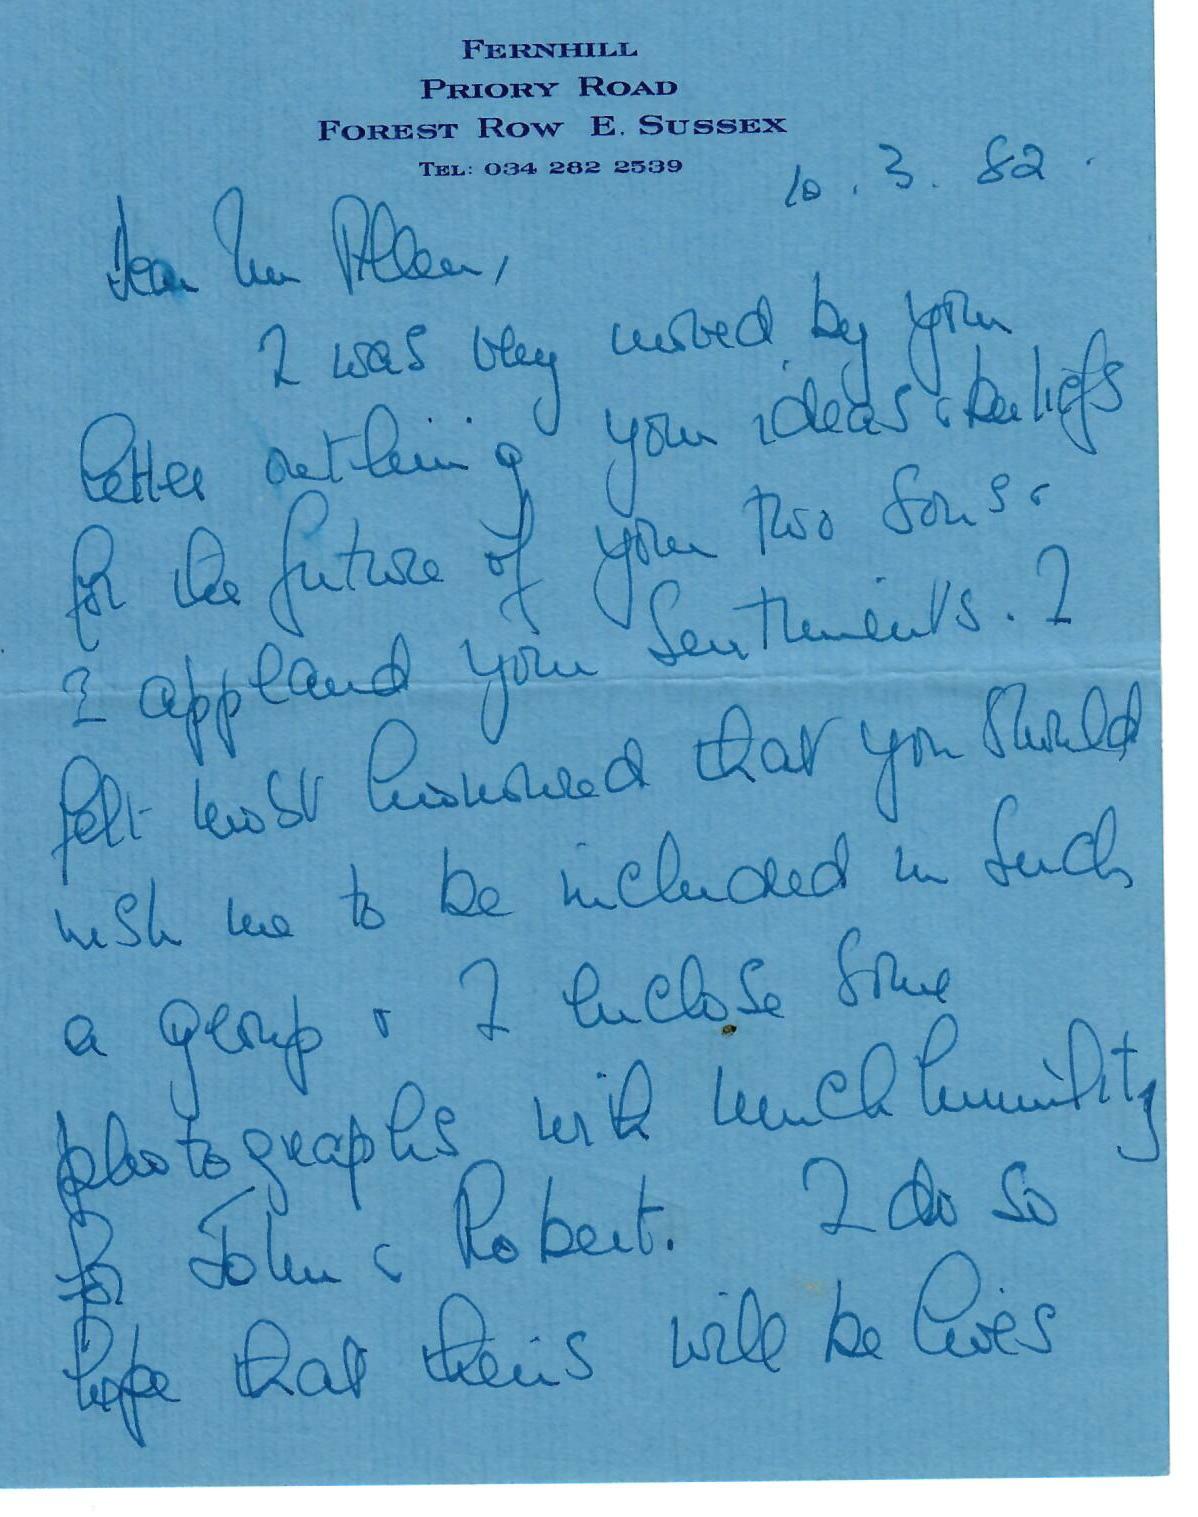 FERNHILL
PRIORY ROAD
FOREST ROW E. SUSSEX
TEL: 034 282 2539
10. 3. 82.
Dear Mr Allen,
I was very moved by your
letter outlining your ideas & beliefs
for the future of your two sons &
I applaud your sentiments. I
felt most honoured that you should
wish me to be included in such
a group & I enclose some
photographs with much humility
for John & Robert. I do so
hope that theirs will be lives